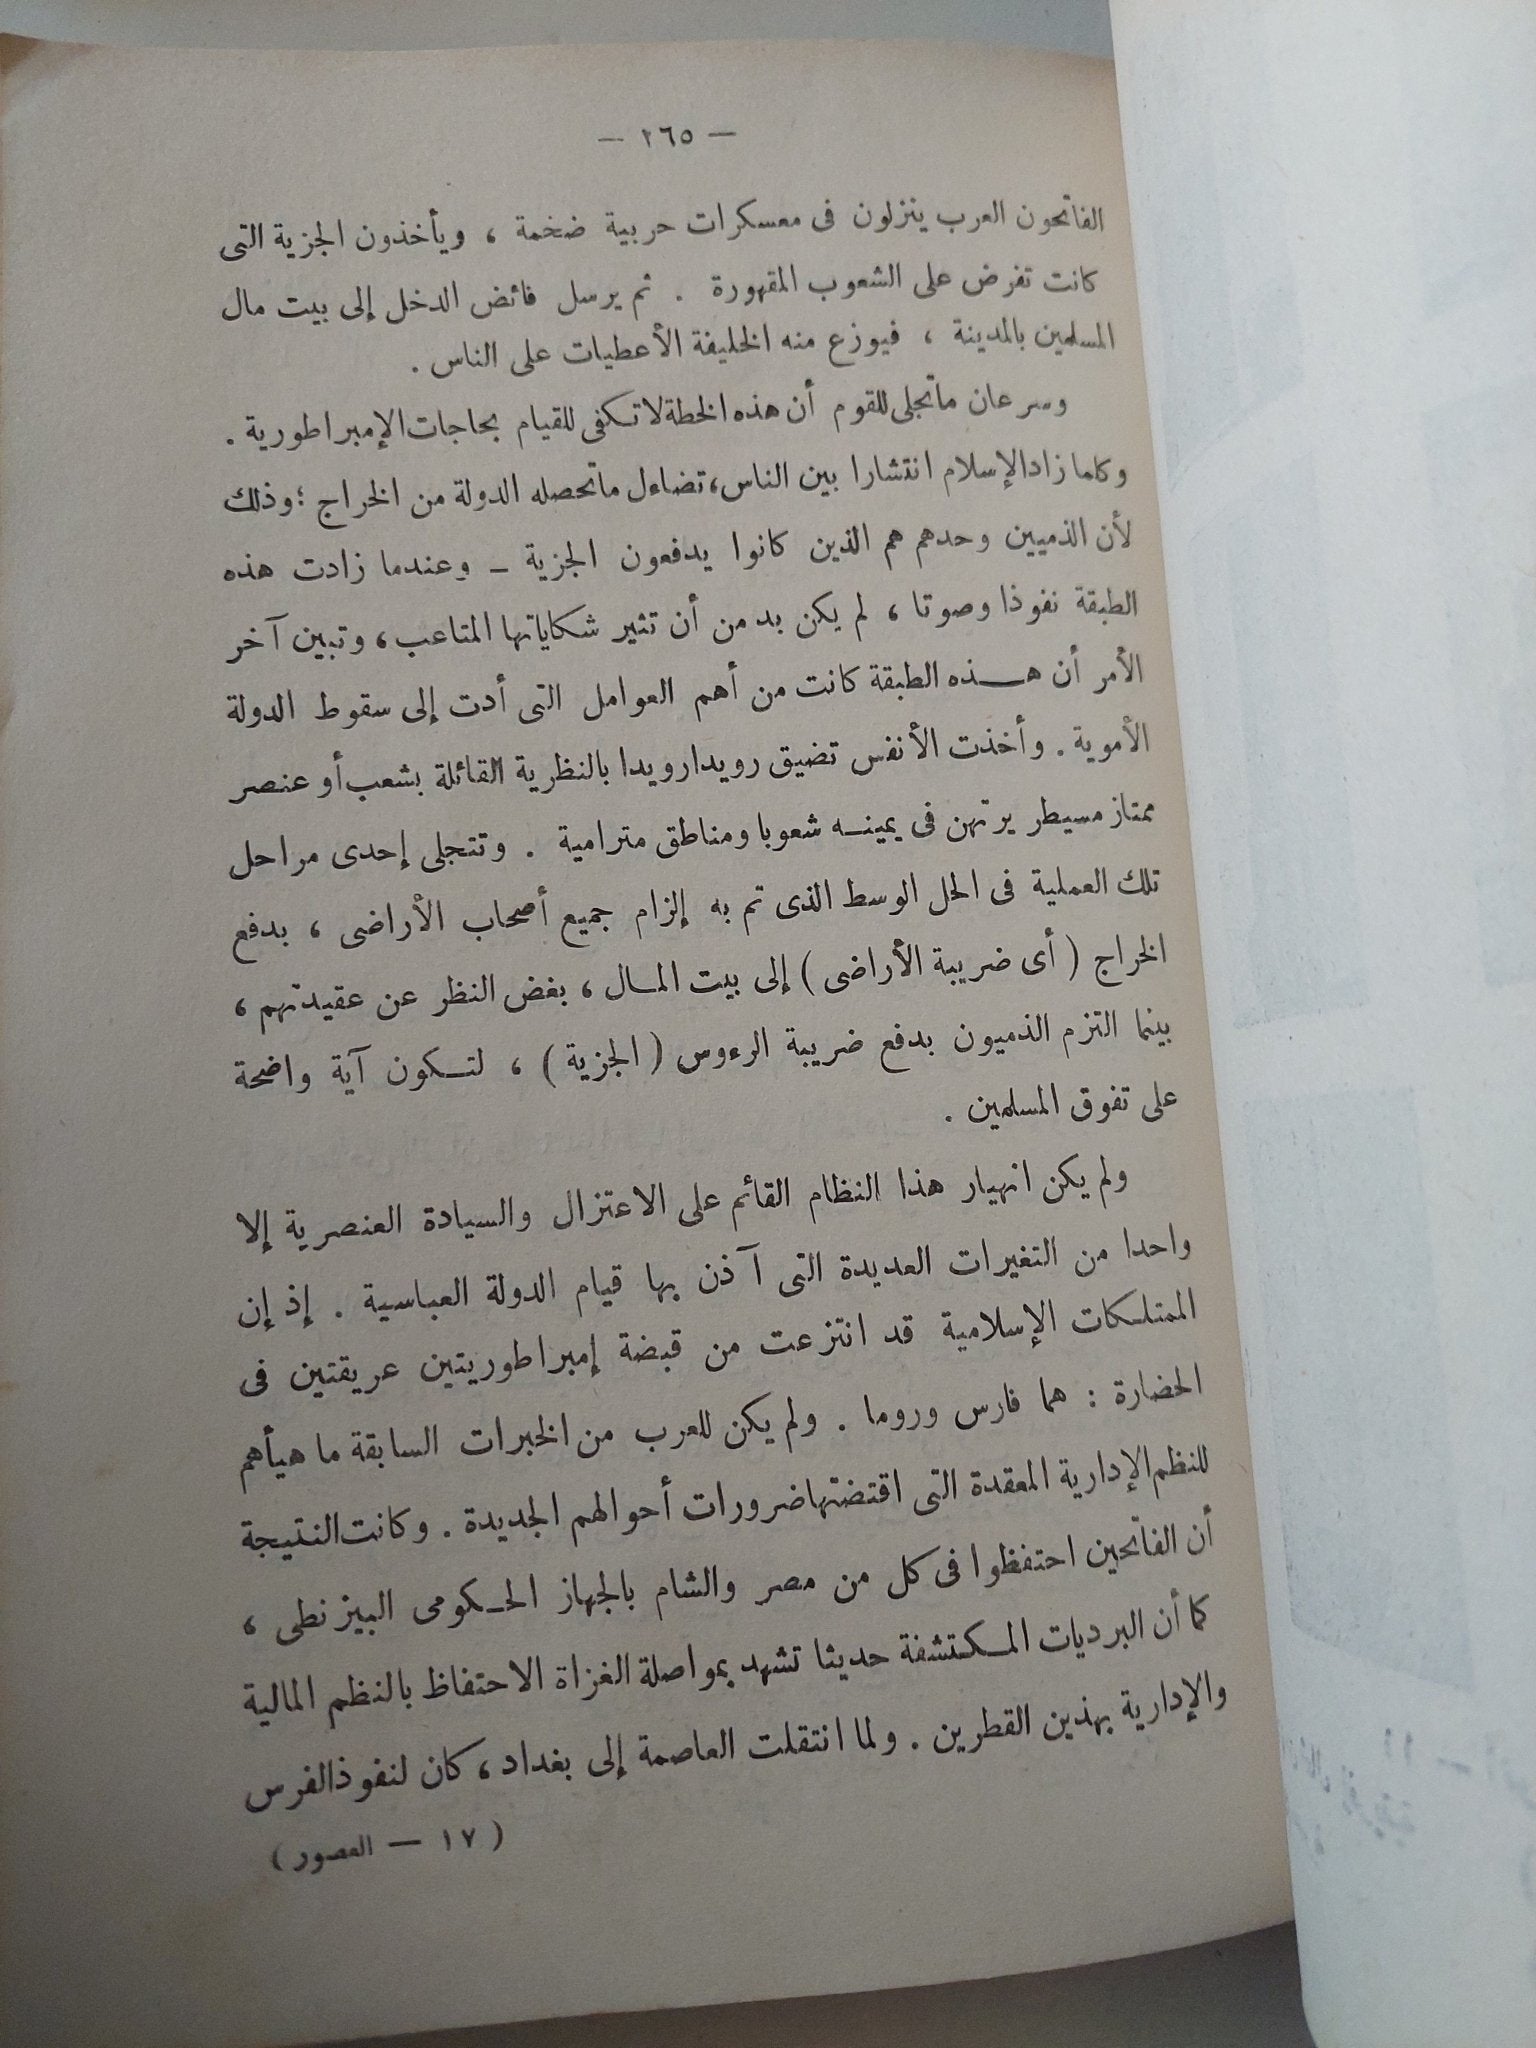 — ٢٦٥ —
الفاتحون العرب ينزلون فى معسكرات حربية ضخمة ، ويأخذون الجزية التى
كانت تفرض على الشعوب المقهورة . ثم يرسل فائض الدخل إلى بيت مال
المسلمين بالمدينة ، فيوزع منه الخليفة الأعطيات على الناس .
وسرعان ماتجلى للقوم أن هذه الخطة لا تكفى للقيام بحاجات الإمبراطورية .
وكلما زاد الإسلام انتشارا بين الناس ، تضاءل ماتحصله الدولة من الخراج ؛ وذلك
لأن الذميين وحدهم هم الذين كانوا يدفعون الجزية — وعندما زادت هذه
الطبقة نفوذا وصوتا ، لم يكن بد من أن تثير شكاياتها المتاعب ، وتبين آخر
الأمر أن هذه الطبقة كانت من أهم العوامل التى أدت إلى سقوط الدولة
الأموية . وأخذت الأنفس تضيق رويدا رويدا بالنظرية القائلة بشعب أو عنصر
ممتاز مسيطر يرتهن فى يمينه شعوبا ومناطق مترامية . وتتجلى إحدى مراحل
تلك العملية فى الحل الوسط الذى تم به إلزام جميع أصحاب الأراضى ، بدفع
الخراج ( أى ضريبة الأراضى ) إلى بيت المال ، بغض النظر عن عقيدتهم ،
بينما التزم الذميون بدفع ضريبة الرءوس ( الجزية ) ، لتكون آية واضحة
على تفوق المسلمين .
ولم يكن انهيار هذا النظام القائم على الاعتزال والسيادة العنصرية إلا
واحدا من التغيرات العديدة التى آذن بها قيام الدولة العباسية . إذ إن
الممتلكات الإسلامية قد انتزعت من قبضة إمبراطوريتين عريقتين فى
الحضارة : هما فارس وروما . ولم يكن للعرب من الخبرات السابقة ما هيأهم
للنظم الإدارية المعقدة التى اقتضتها ضرورات أحوالهم الجديدة . وكانت النتيجة
أن الفاتحين احتفظوا فى كل من مصر والشام بالجهاز الحكومى البيزنطى ،
كما أن البرديات المكتشفة حديثا تشهد بمواصلة الغزاة الاحتفاظ بالنظم المالية
والإدارية بهذين القطرين . ولما انتقلت العاصمة إلى بغداد ، كان لنفوذ الفرس
( ١٧ — العصور )